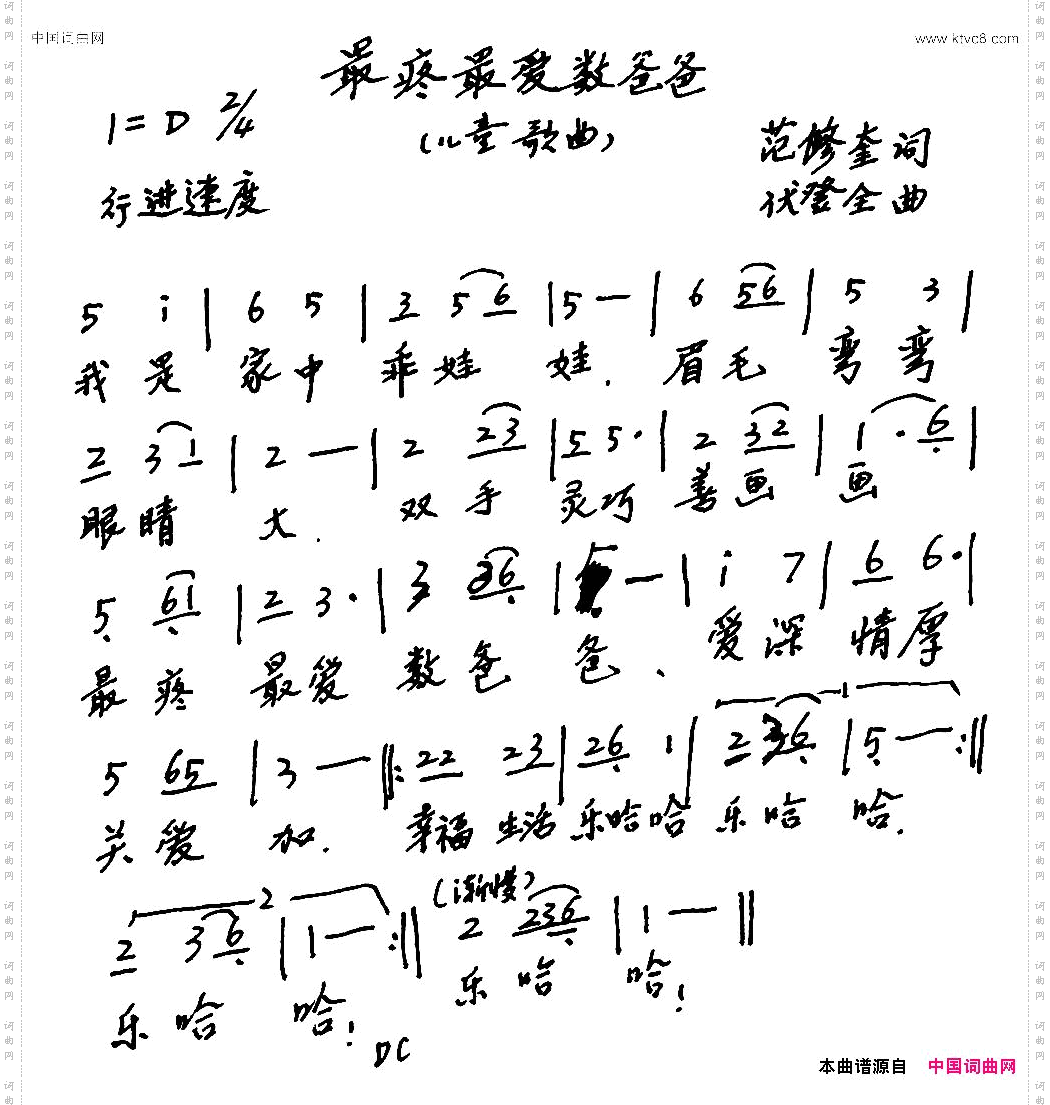 中国词曲网 www.ktvc8.com
最疼最爱数爸爸
1=D 2/4 (儿童歌曲) 范修奎词
行进速度 伏登全曲
5 i | 6 5 | 3 5 6 | 5 — | 6 56 | 5 3 |
我是 家中 乖娃 娃. 眉毛 弯弯
2 3 1 | 2 — | 2 23 | 5 5· | 2 32 | 1 · 6 |
眼睛 大. 双手 灵巧 善画 画
5 61 | 2 3· | 3 36 | — | i 7 | 6 6· |
最疼 最爱 数爸 爸、爱深 情厚
5 65 | 3 — ‖: 22 23 | 26 1 | 2 36 | 5 — :‖
关爱 加. 幸福生活 乐哈哈 乐哈 哈.
2 (渐慢)
2 3 6 | 1 — :‖ 2 236 | 1 — ‖
乐哈 哈! 乐哈 哈!
DC
本曲谱源自 中国词曲网